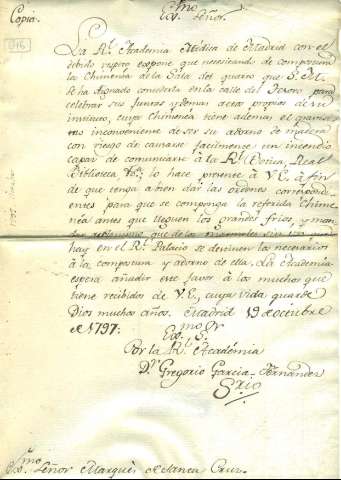 Copia.
Exmo Señor.
La Rl. Academia Médica de Madrid con el
debido respeto expone que necesitando de compostura
la Chimenea de la Sala del quarto que S. M.
se ha dignado concederla en la calle del Tesoro para
celebrar sus Juntas y demas actos propios de su
instituto, cuya Chimenea tiene ademas el gravisi-
mo inconveniente de ser su adorno de madera
con riesgo de causarse facilmente un incendio
capaz de comunicarse à la Rl. Botica, Real
Biblioteca &c. lo hace presente à V. E. à fin
de que tenga a bien dar las òrdenes correspondi-
entes para que se componga la referida Chime-
nea antes que lleguen los grandes frios, y man-
dar asimismo que de los marmoles sin uso que
hay en el Rl. Palacio se destinen los necesarios
à la compostura y adorno de ella. La Academia
espera añadir este favor à los muchos que
tiene recibidos de V. E., cuya vida guarde
Dios muchos años. Madrid 19 de octubre
de 1797.
Exmo Sr.
Por la Rl. Académia
Dr. Gregorio Garcia Fernandez
Srio
Exmo. Señor Marquès de Santa Cruz.